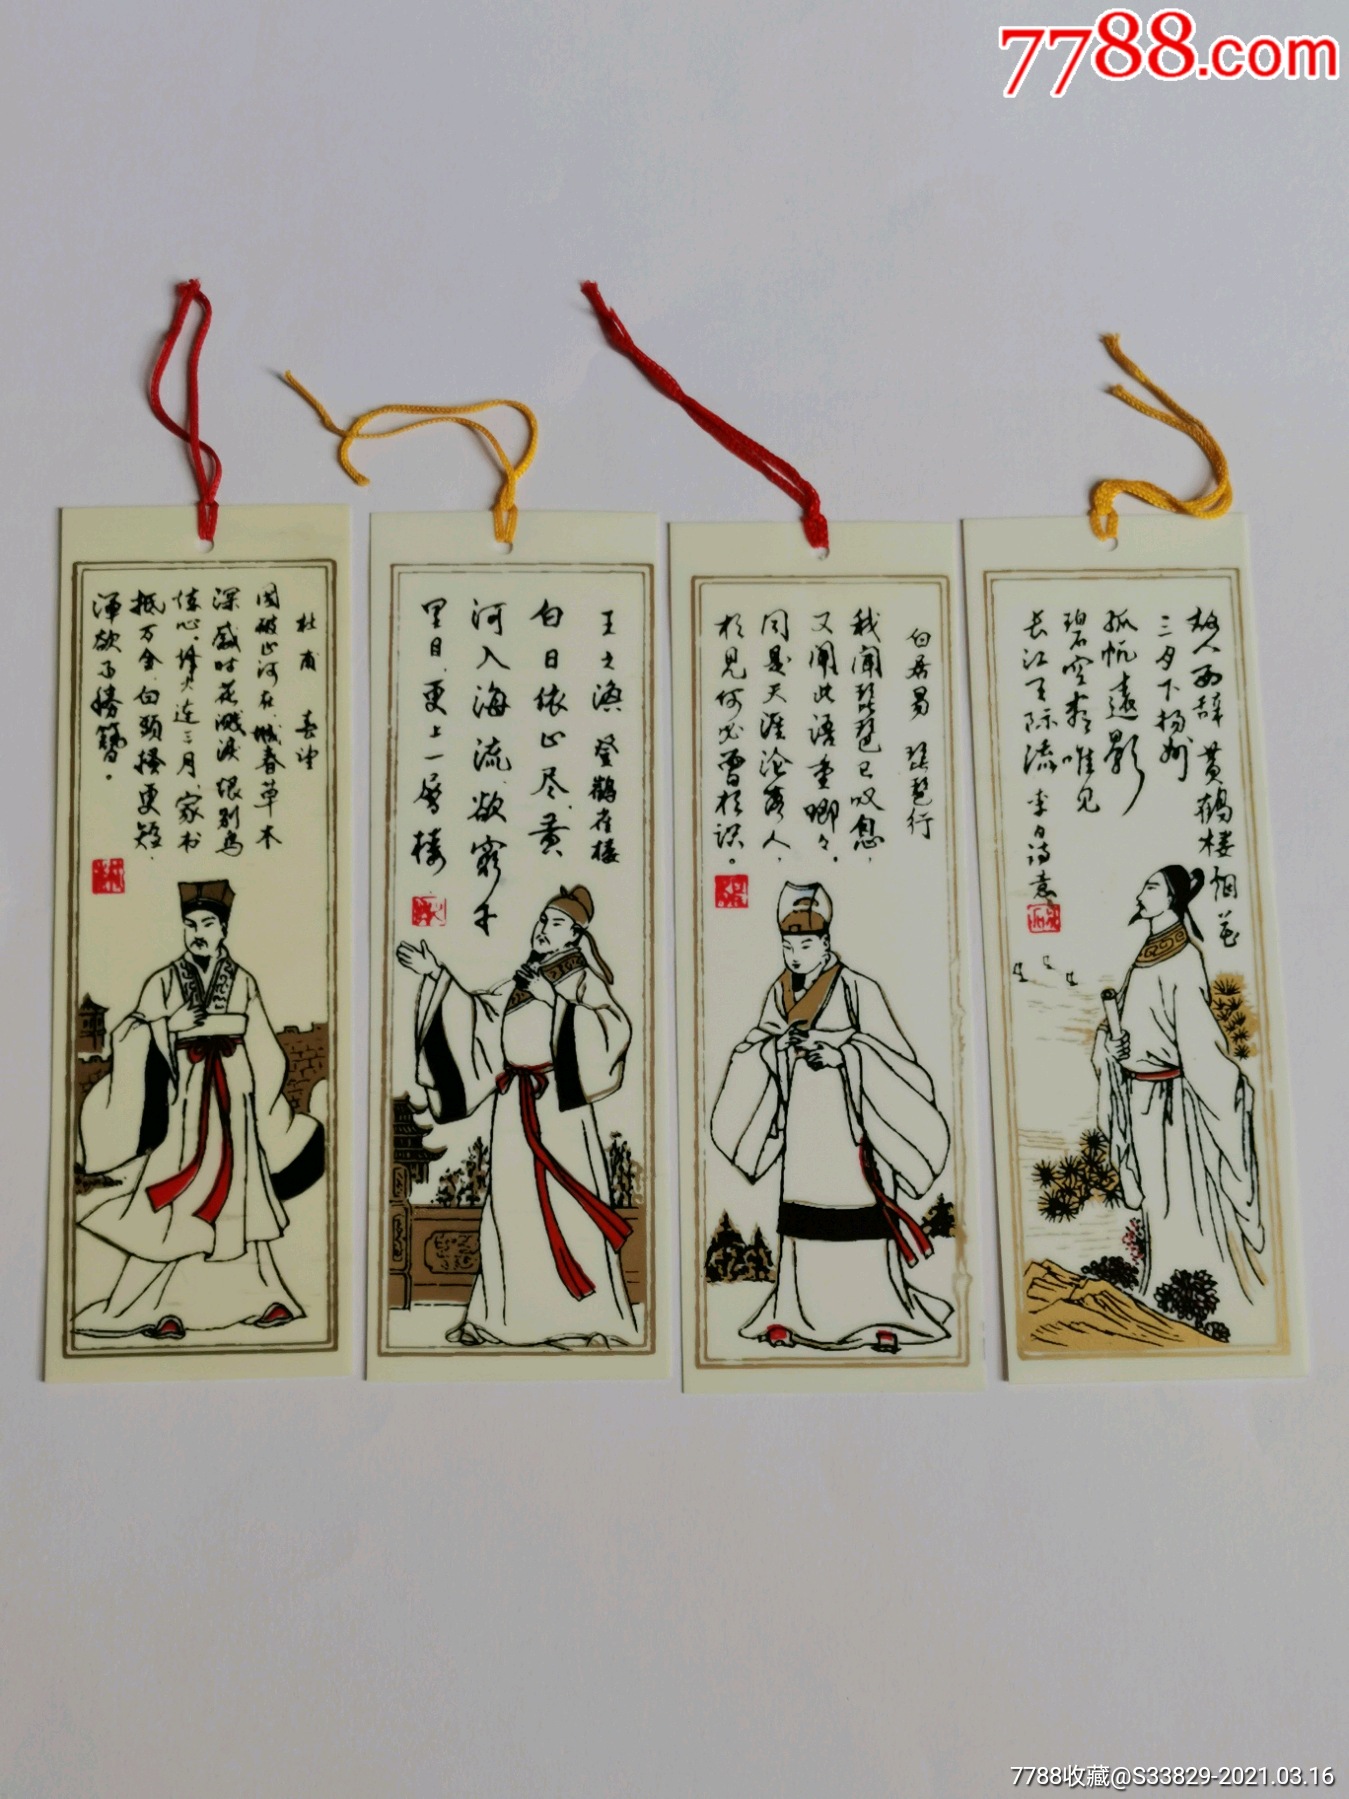 7788.com
杜甫 春望
国破山河在,城春草木
深,感时花溅泪,恨别鸟
惊心,烽火连三月,家书
抵万金,白头搔更短,
浑欲不胜簪。
王之涣 登鹳雀楼
白日依山尽,黄
河入海流,欲穷千
里目,更上一层楼
白居易 琵琶行
我闻琵琶已叹息,
又闻此语重唧々,
同是天涯沦落人,
相见何必曾相识。
故人西辞黄鹤楼 烟花
三月下扬州
孤帆远影
碧空尽唯见
长江天际流 李白诗意
7788收藏@S33829-2021.03.16